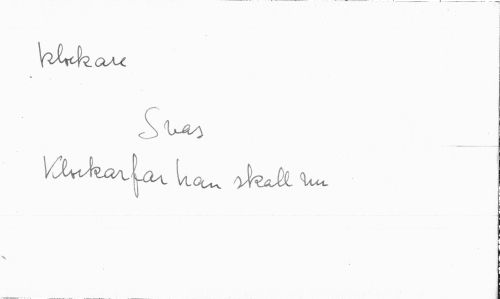 klockare
Svas
Klockarfar han skall nu